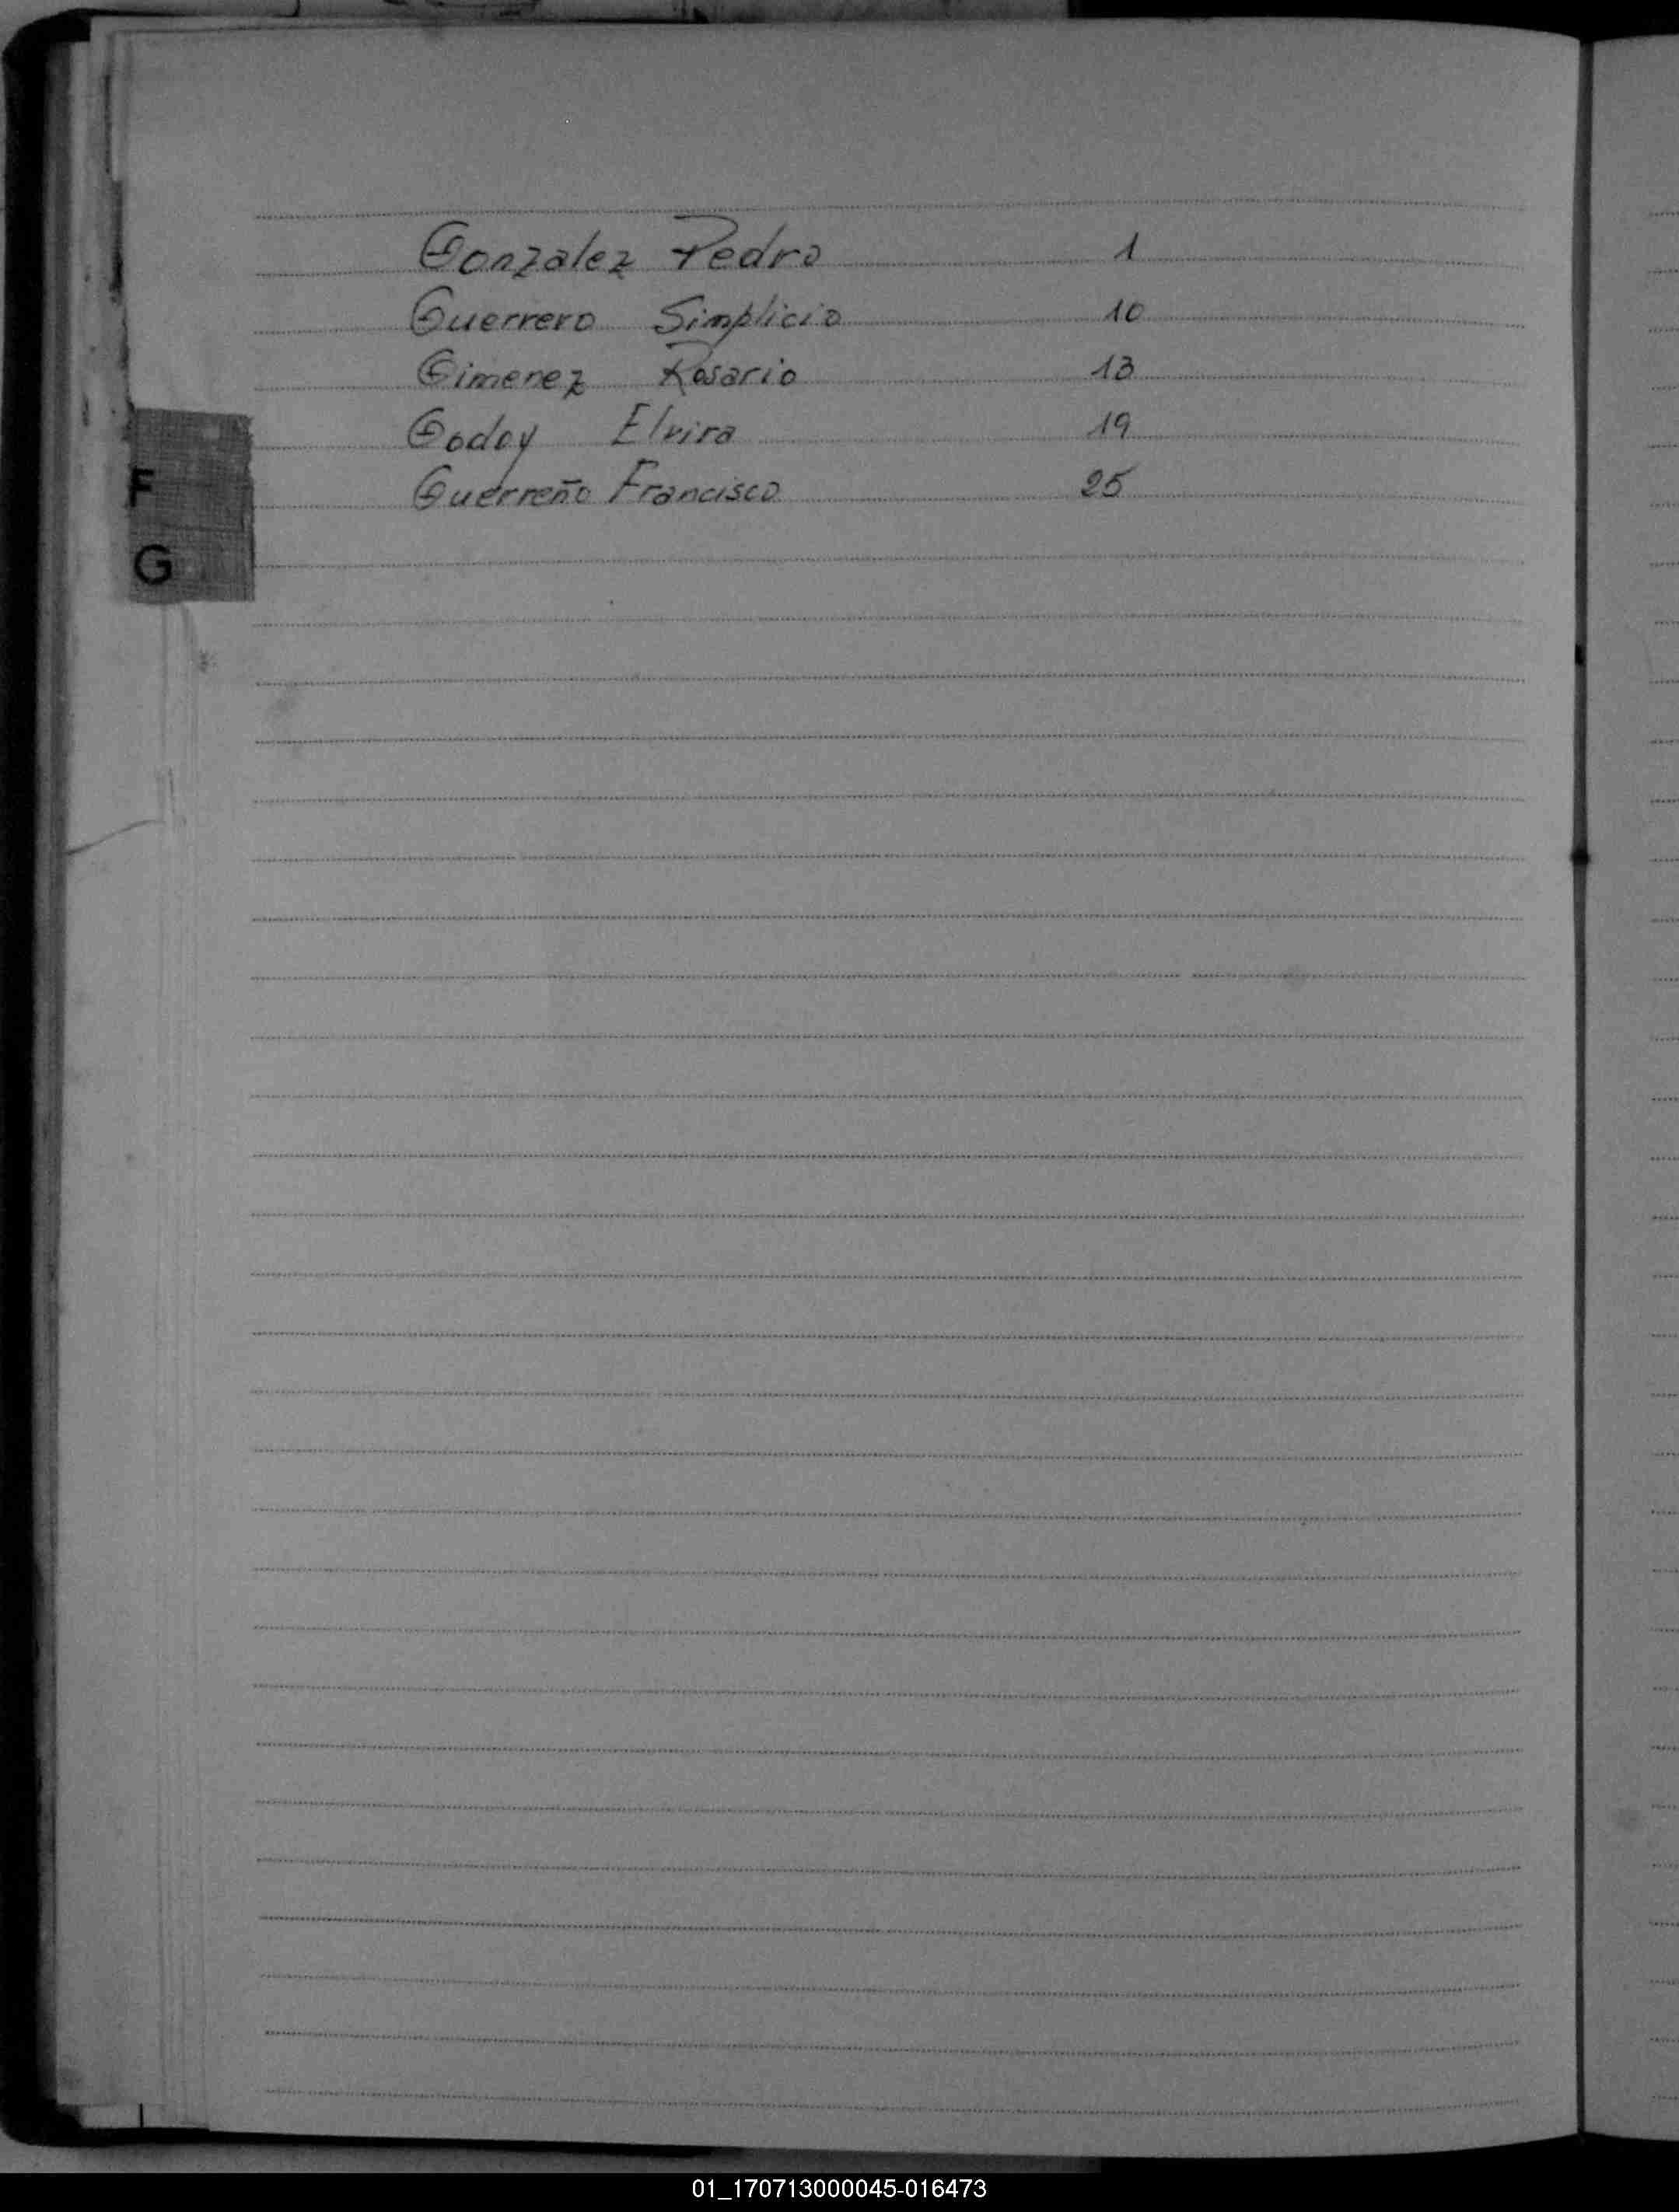 Gonzalez Pedro 1
Guerrero Simplicio 10
Gimenez Rosario 13
Godoy Elvira 19
Guerreño Francisco 25
F
G
01_170713000045-016473